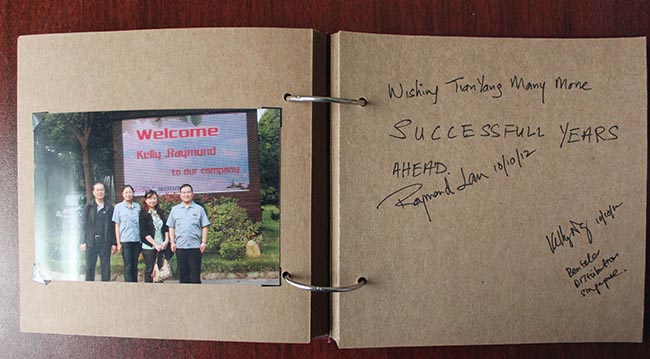 Welcome
Kelly Raymond
to our company
Wishing TianYang Many More
SUCCESSFULL YEARS
AHEAD.
Raymond Lau 10/10/12
Kelly Ng 10/10/12
Benteler
Distribution
Singapore.